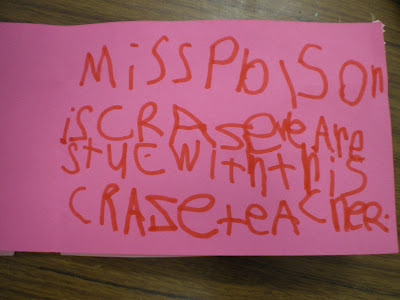 MiSS PblSOn
iS CRASe we Are
stUC With this
CRASE teACHER.